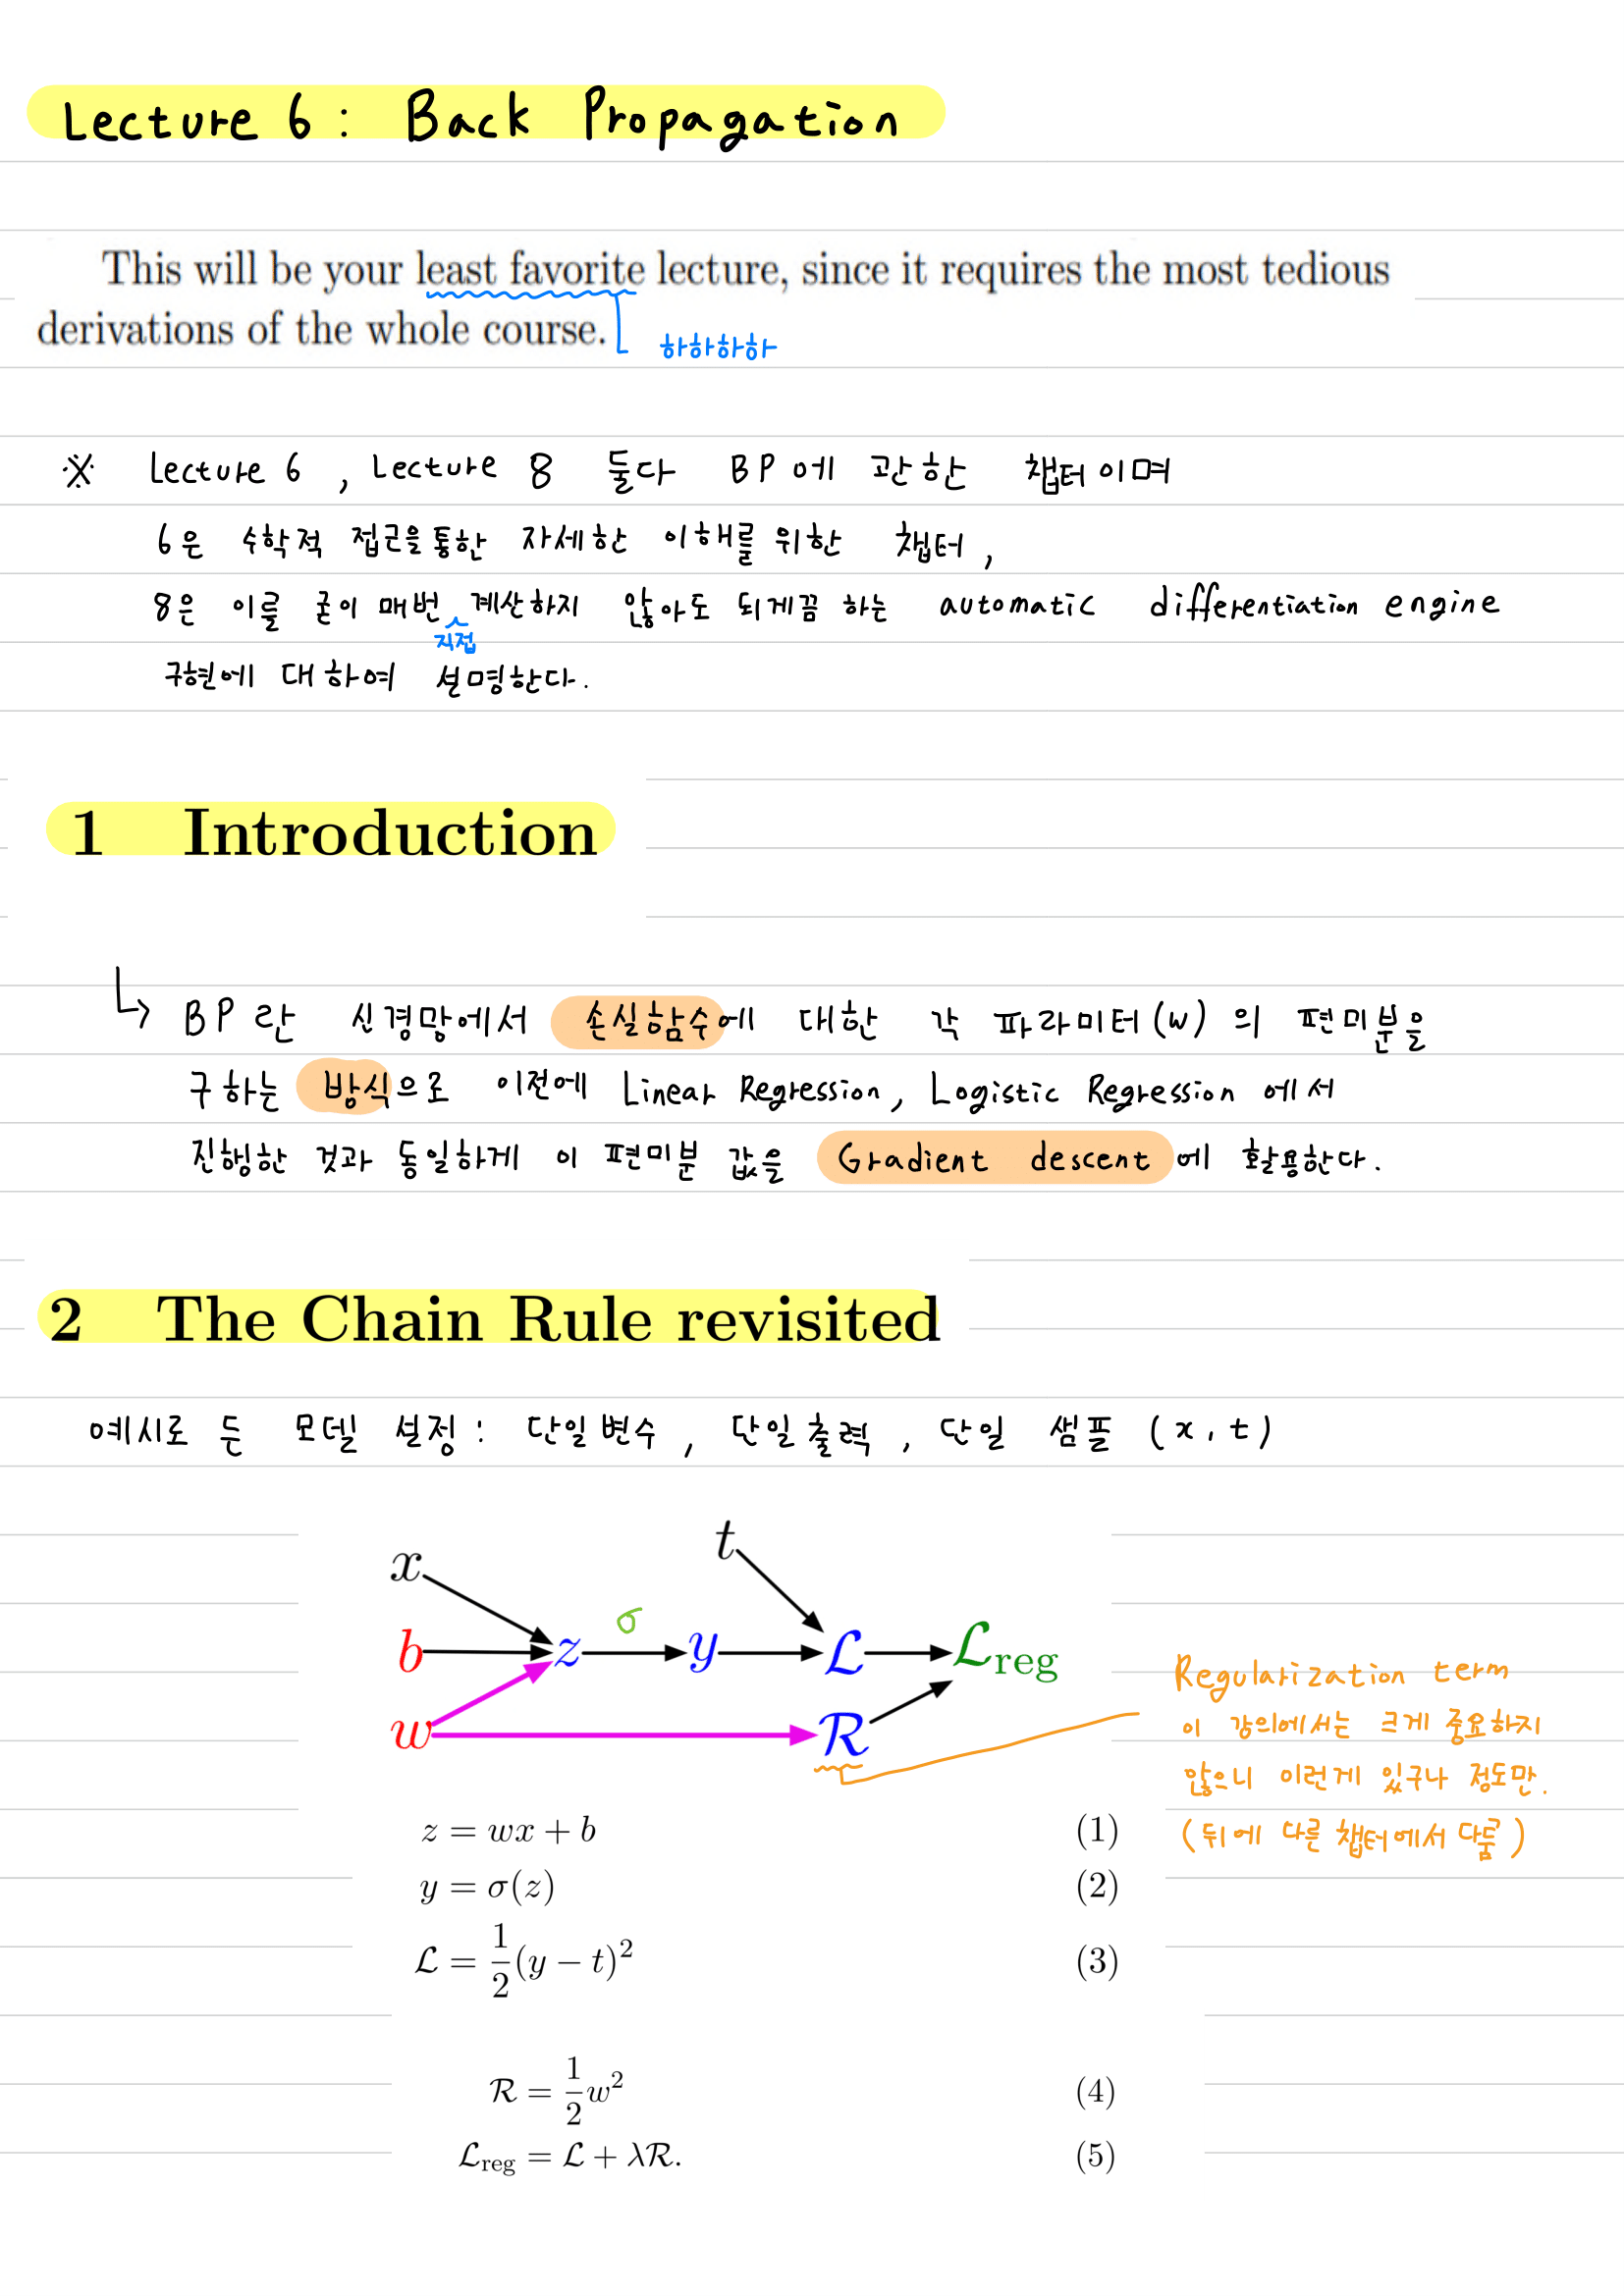 Lecture 6 : Back Propagation
This will be your least favorite lecture, since it requires the most tedious
derivations of the whole course.
하하하하
※ Lecture 6 , Lecture 8 둘다 BP에 관한 챕터이며
6은 수학적 접근을통한 자세한 이해를 위한 챕터,
8은 이를 굳이 매번 계산하지 않아도 되게끔 하는 automatic differentiation engine
직접
구현에 대하여 설명한다.
1 Introduction
↳ BP란 신경망에서 손실함수에 대한 각 파라미터(w)의 편미분을
구하는 방식으로 이전에 Linear Regression, Logistic Regression에서
진행한 것과 동일하게 이 편미분 값을 Gradient descent에 활용한다.
2 The Chain Rule revisited
예시로 든 모델 설정: 단일변수, 단일출력, 단일 샘플 (x, t)
x
t
b
z
σ
y
ℒ
ℒreg
w
ℛ
Regularization term
이 강의에서는 크게 중요하지
않으니 이런게 있구나 정도만.
(뒤에 다른 챕터에서 다룸)
z = wx + b (1)
y = σ(z) (2)
ℒ = 1/2 (y − t)² (3)
ℛ = 1/2 w² (4)
ℒreg = ℒ + λℛ. (5)